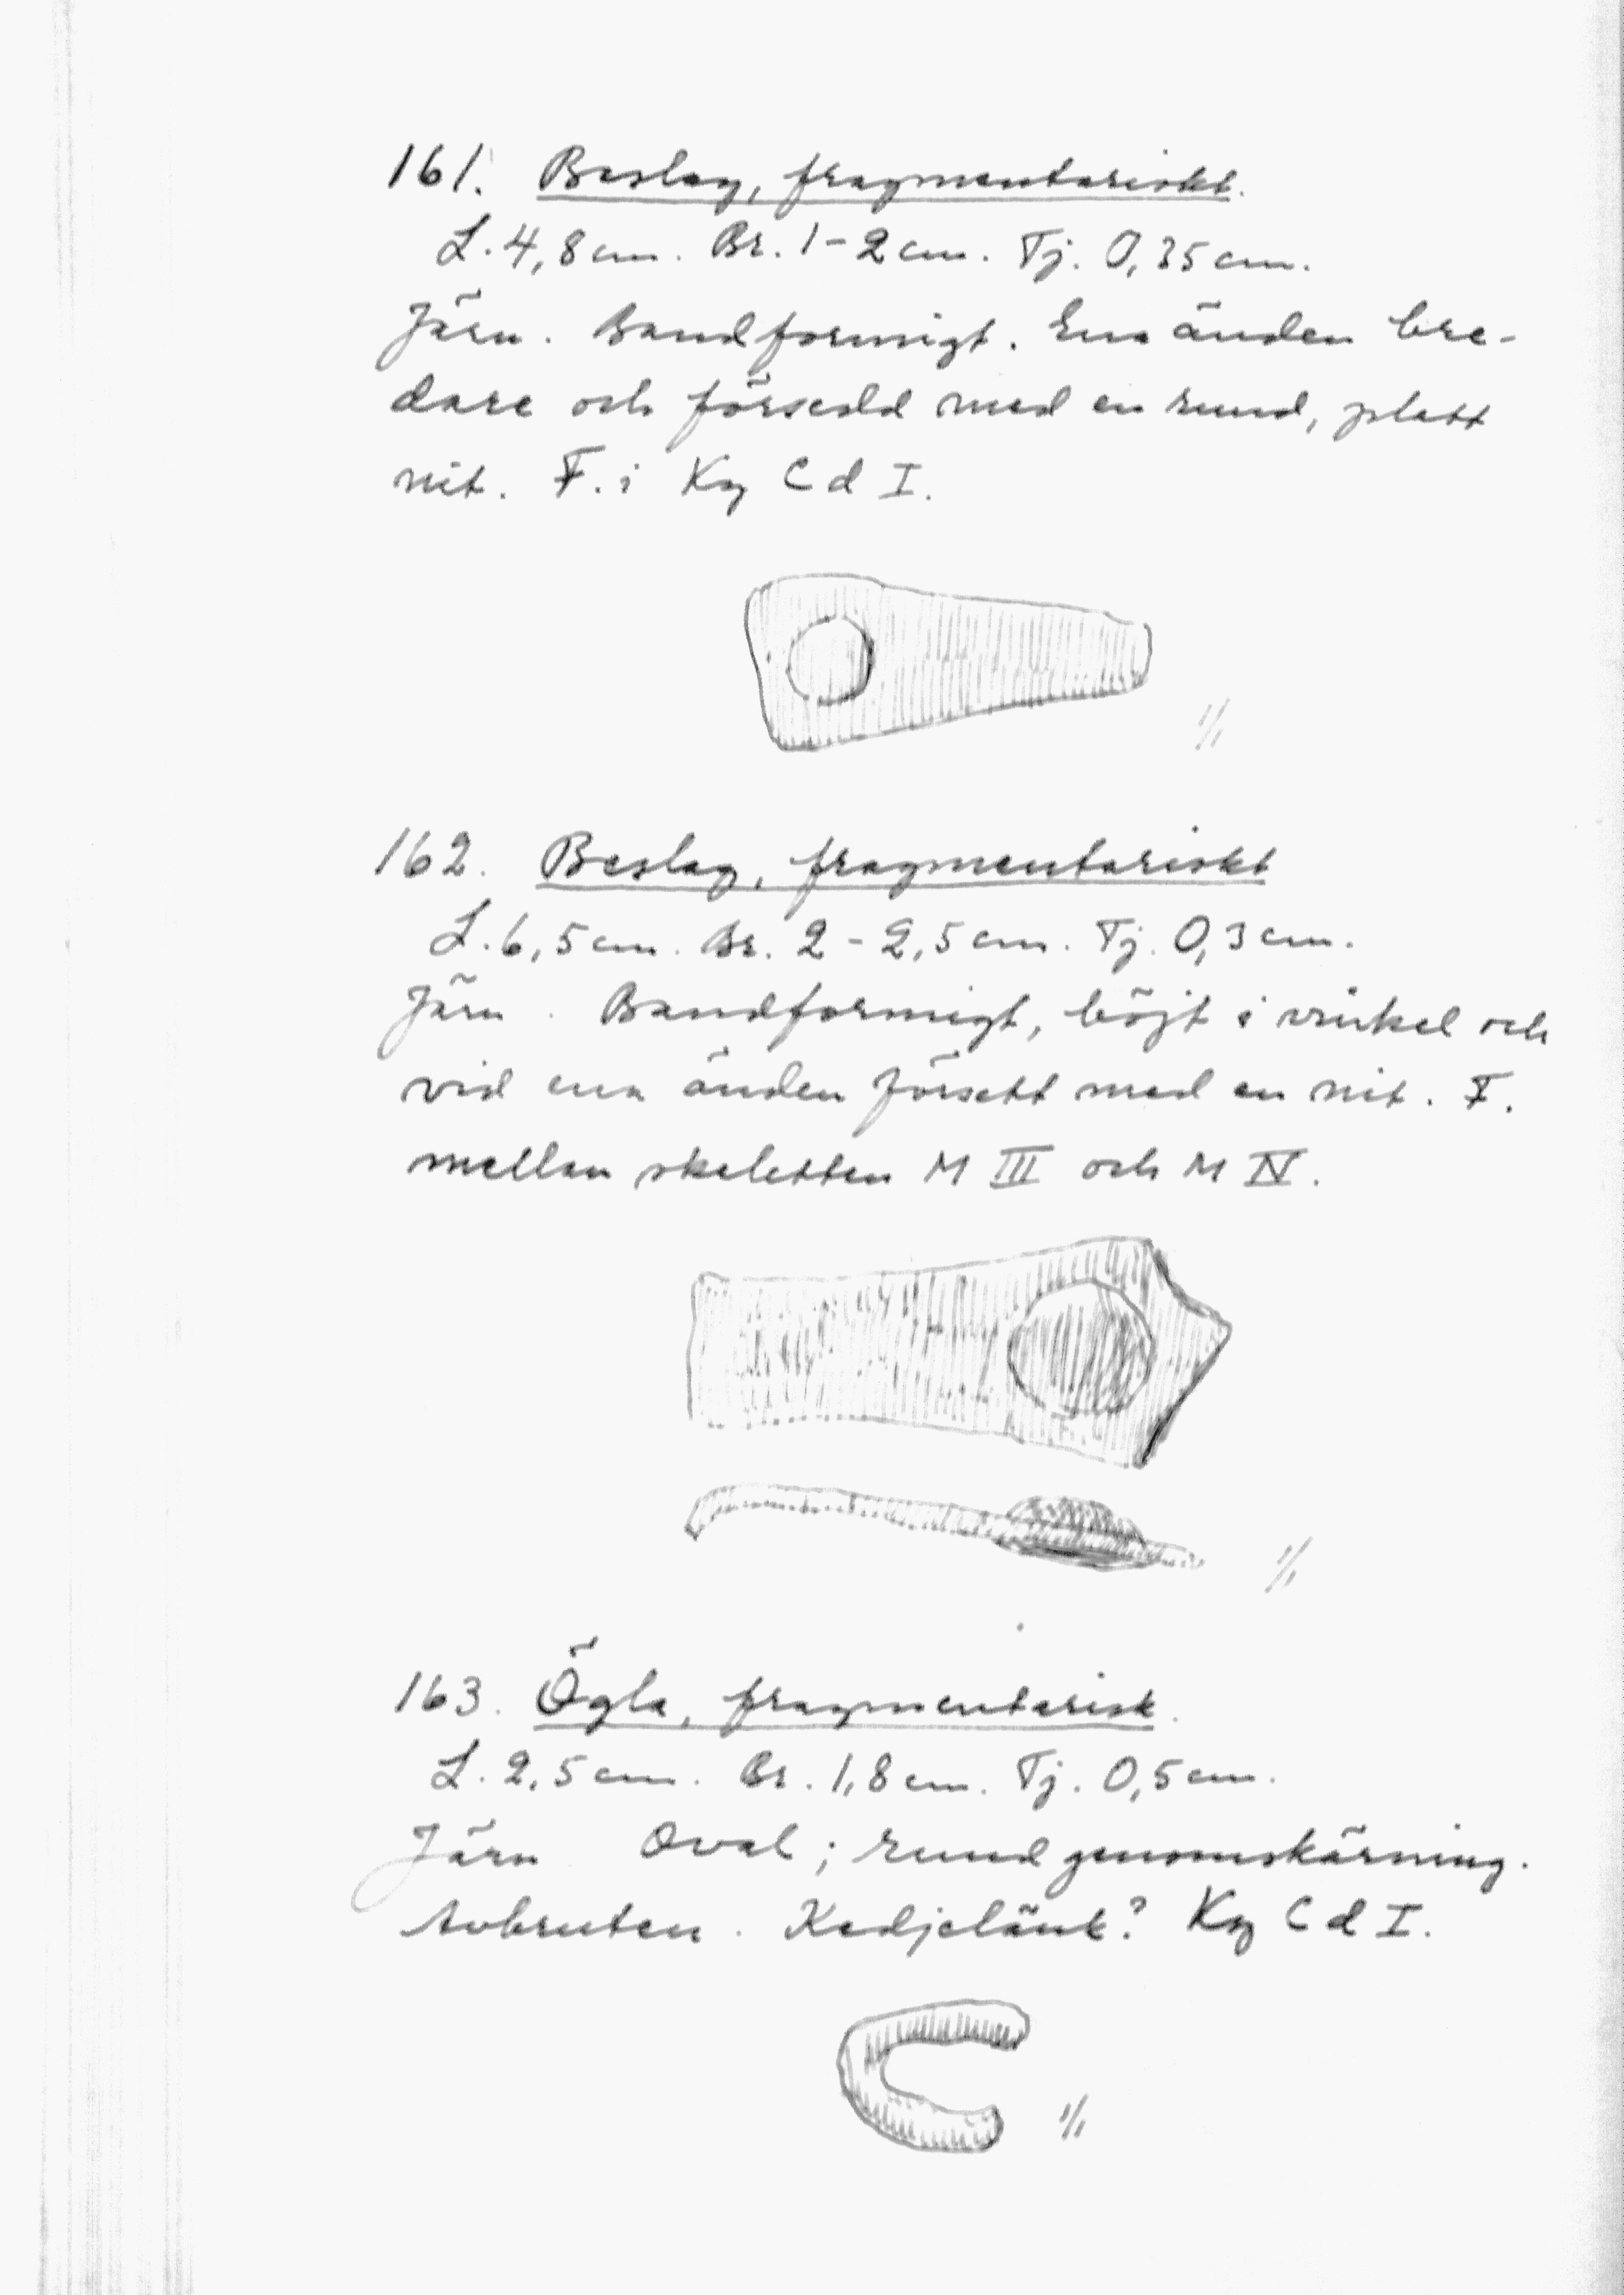 161. Beslag, fragmentariskt.
L. 4,8 cm. Br. 1-2 cm. Tj. 0,35 cm.
Järn. Bandformigt. Ena änden bre-
dare och försedd med en rund, platt
nit. F. i Kg C d I.
1/1
162. Beslag, fragmentariskt
L. 6,5 cm. Br. 2-2,5 cm. Tj. 0,3 cm.
Järn. Bandformigt, böjt i vinkel och
vid ena änden försett med en nit. F.
mellan skeletten M III och M IV.
1/1
163. Ögla, fragmentarisk.
L. 2,5 cm. Br. 1,8 cm. Tj. 0,5 cm.
Järn Oval; rund genomskärning.
Avbruten. Kedjelänk? Kg C d I.
1/1